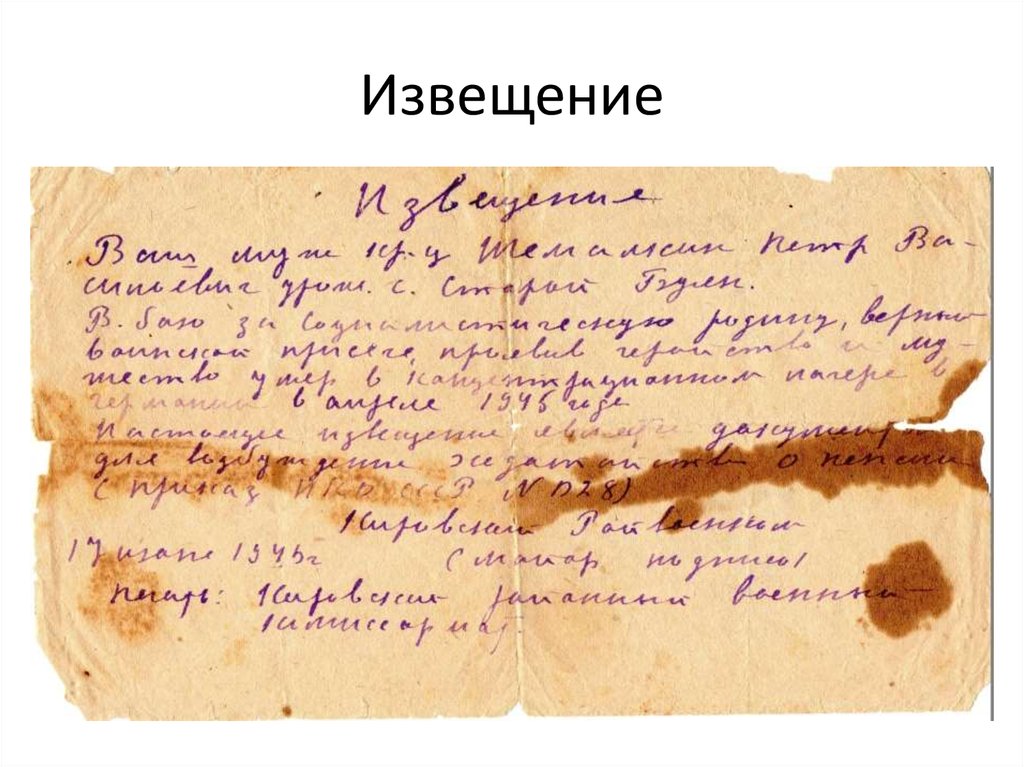 Извещение
Извещение
Ваш муж кр-ц Шемалкин Петр Ва-
сильевич урож. с. Старой Буян.
В. бою за социалистическую родину, верный
воинской присяге, проявив геройство и му-
жество умер в концентрационном лагере в
германии в апреле 1945 годе
Настоящее извещение является документом
для возбуждения ходатайства о пенсии
(приказ НКО СССР N 028)
Кировский Райвоенком
17 июля 1945г (майор подпись)
печать: Кировский районный военный
комиссариат.